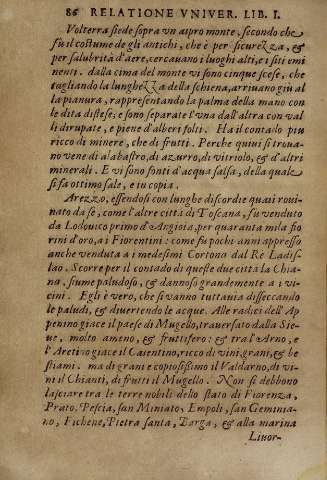 86 RELATIONE VNIVER. LIB. I.
Volterra siede sopra vn aspro monte, secondo che
fu il costume de gli antichi, che è per sicurezza, &
per salubrità d'aere, cercauano i luoghi alti, e i siti emi
nenti. dalla cima del monte vi sono cinque scese, che
tagliando la lunghezza della schiena, arriuano giù al
la pianura, rappresentando la palma della mano con
le dita distese; e sono separate l'vna dall'altra con val
li dirupate, e piene d'alberi folti. Ha il contado piu
ricco di minere, che di frutti. Perche quiui si troua-
no vene di alabastro, di azurro, di vitriolo, & d'altri
minerali. E vi sono fonti d'acqua salsa, della quale
si fa ottimo sale, e in copia.
Arezzo, essendosi con lunghe discordie quasi roui-
nato da se, come l'altre città di Toscana, fu venduto
da Lodouico primo d'Angioia, per quaranta mila fio
rini d'oro, a i Fiorentini: come fu pochi anni appresso
anche venduta a i medesimi Cortona dal Re Ladis-
lao. Scorre per il contado di queste due città la Chia
na, fiume paludoso, & dannoso grandemente a i vi-
cini. Egli è vero, che si vanno tuttauia disseccando
le paludi, & diuertendo le acque. Alle radici dell'Ap
penino giace il paese di Mugello, trauersato dalla Sie-
ue, molto ameno, & fruttifero: & tra l'Arno, e
l'Aretino giace il Casentino, ricco di vini, grani, & be
stiami. ma di grani e copiosissimo il Valdarno, di vi-
ni il Chianti, di frutti il Mugello. Non si debbono
lasciare tra le terre nobili dello stato di Fiorenza,
Prato, Pescia, san Miniato, Empoli, san Geminia-
no, Fichene, Pietra santa, Barga, & alla marina
Liuor-